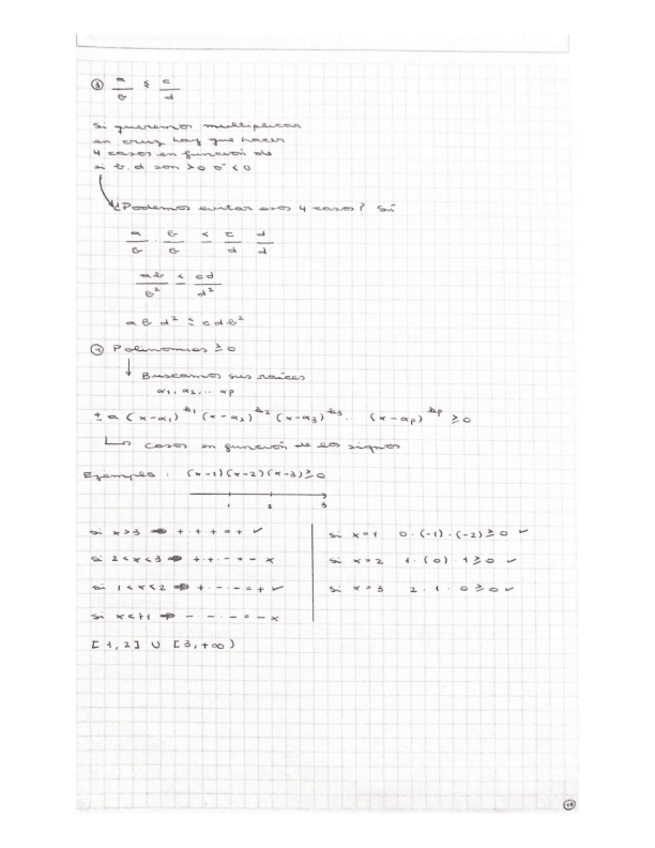 ③ a/b ≤ c/d
Si queremos multiplicar
en cruz hay que hacer
4 casos en función de
si b, d son >0 ó <0
¿Podemos evitar esos 4 casos? Sí
a/b · b/b ≤ c/d · d/d
ab/b² ≤ cd/d²
abd² ≤ cdb²
④ Polinomios ≥ 0
Buscamos sus raíces
α₁, α₂, ... αp
± a (x-α₁)^k₁ (x-α₂)^k₂ (x-α₃)^k₃ ... (x-αp)^kp ≥ 0
↳ casos en función de los signos
Ejemplo: (x-1)(x-2)(x-3) ≥ 0
1 2 3
si x>3 → + · + · + = + ✓
si 2<x<3 → + · + · - = - x
si 1<x<2 → + · - · - = + ✓
si x<1 → - · - · - = - x
si x=1 0 · (-1) · (-2) ≥ 0 ✓
si x=2 1 · (0) · 1 ≥ 0 ✓
si x=3 2 · 1 · 0 ≥ 0 ✓
[1,2] ∪ [3,+∞)